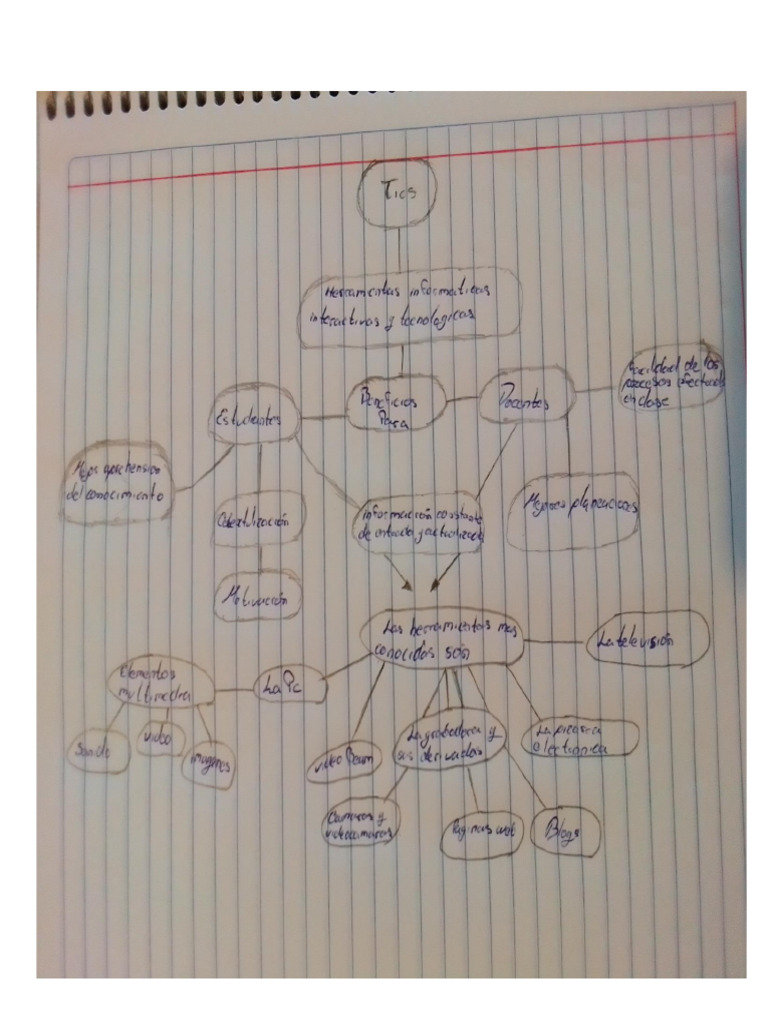 Tics
Herramientas informaticas
interactivas y tecnologicas
Estudiantes
Beneficios
Para
Docentes
Facilidad de los
procesos efectuados
en clase
Mejor aprehension
del conocimiento
Información constante
de entrada y actualizada
Mejores planeaciones
Motivación
Las herramientas mas
conocidas son
La televisión
Elementos
multimedia
La Pc
Sonido
video
imagenes
video Beam
La grabadora y
sus derivados
La
electronica
Camaras y
videocamaras
Paginas web
Blogs